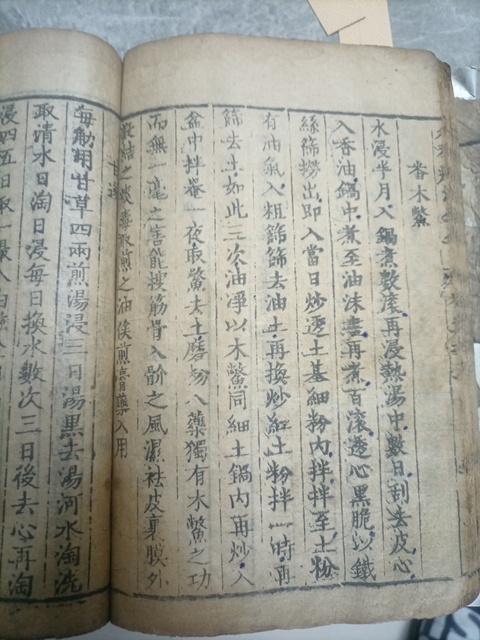 番木鱉
水浸半月入鍋煮數滚再浸熱湯中數日刮去皮心
入香油鍋中煮至油沫盡再煮百滚透心黑脆以鐵
絲篩撈出即入當日炒透土基細粉內拌拌至土粉
有油氣入粗篩篩去油土再換炒紅土粉拌一時再
篩去土如此三次油淨以木鱉同細土鍋內再炒入
盆中拌菴一夜取鱉去土磨粉入藥獨有木鱉之功
而無一毫之害能搜筋骨入骱之風濕祛皮裏膜外
凝結之痰毒取煎之油俟煎膏藥入用
甘遂
每觔用甘草四兩煎湯浸三日湯黑去湯河水淘洗
取清水日淘日浸每日換水數次三日後去心再淘
浸四五日取一撮入白